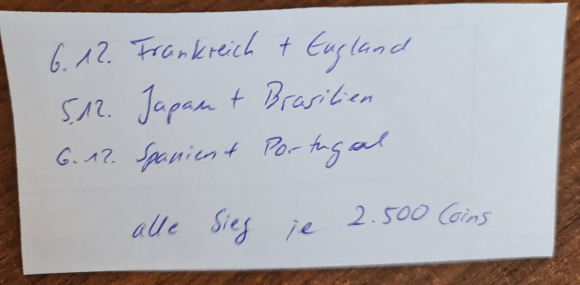 6.12. Frankreich + England
5.12. Japan + Brasilien
6.12. Spanien + Portugal
alle Sieg je 2.500 Coins